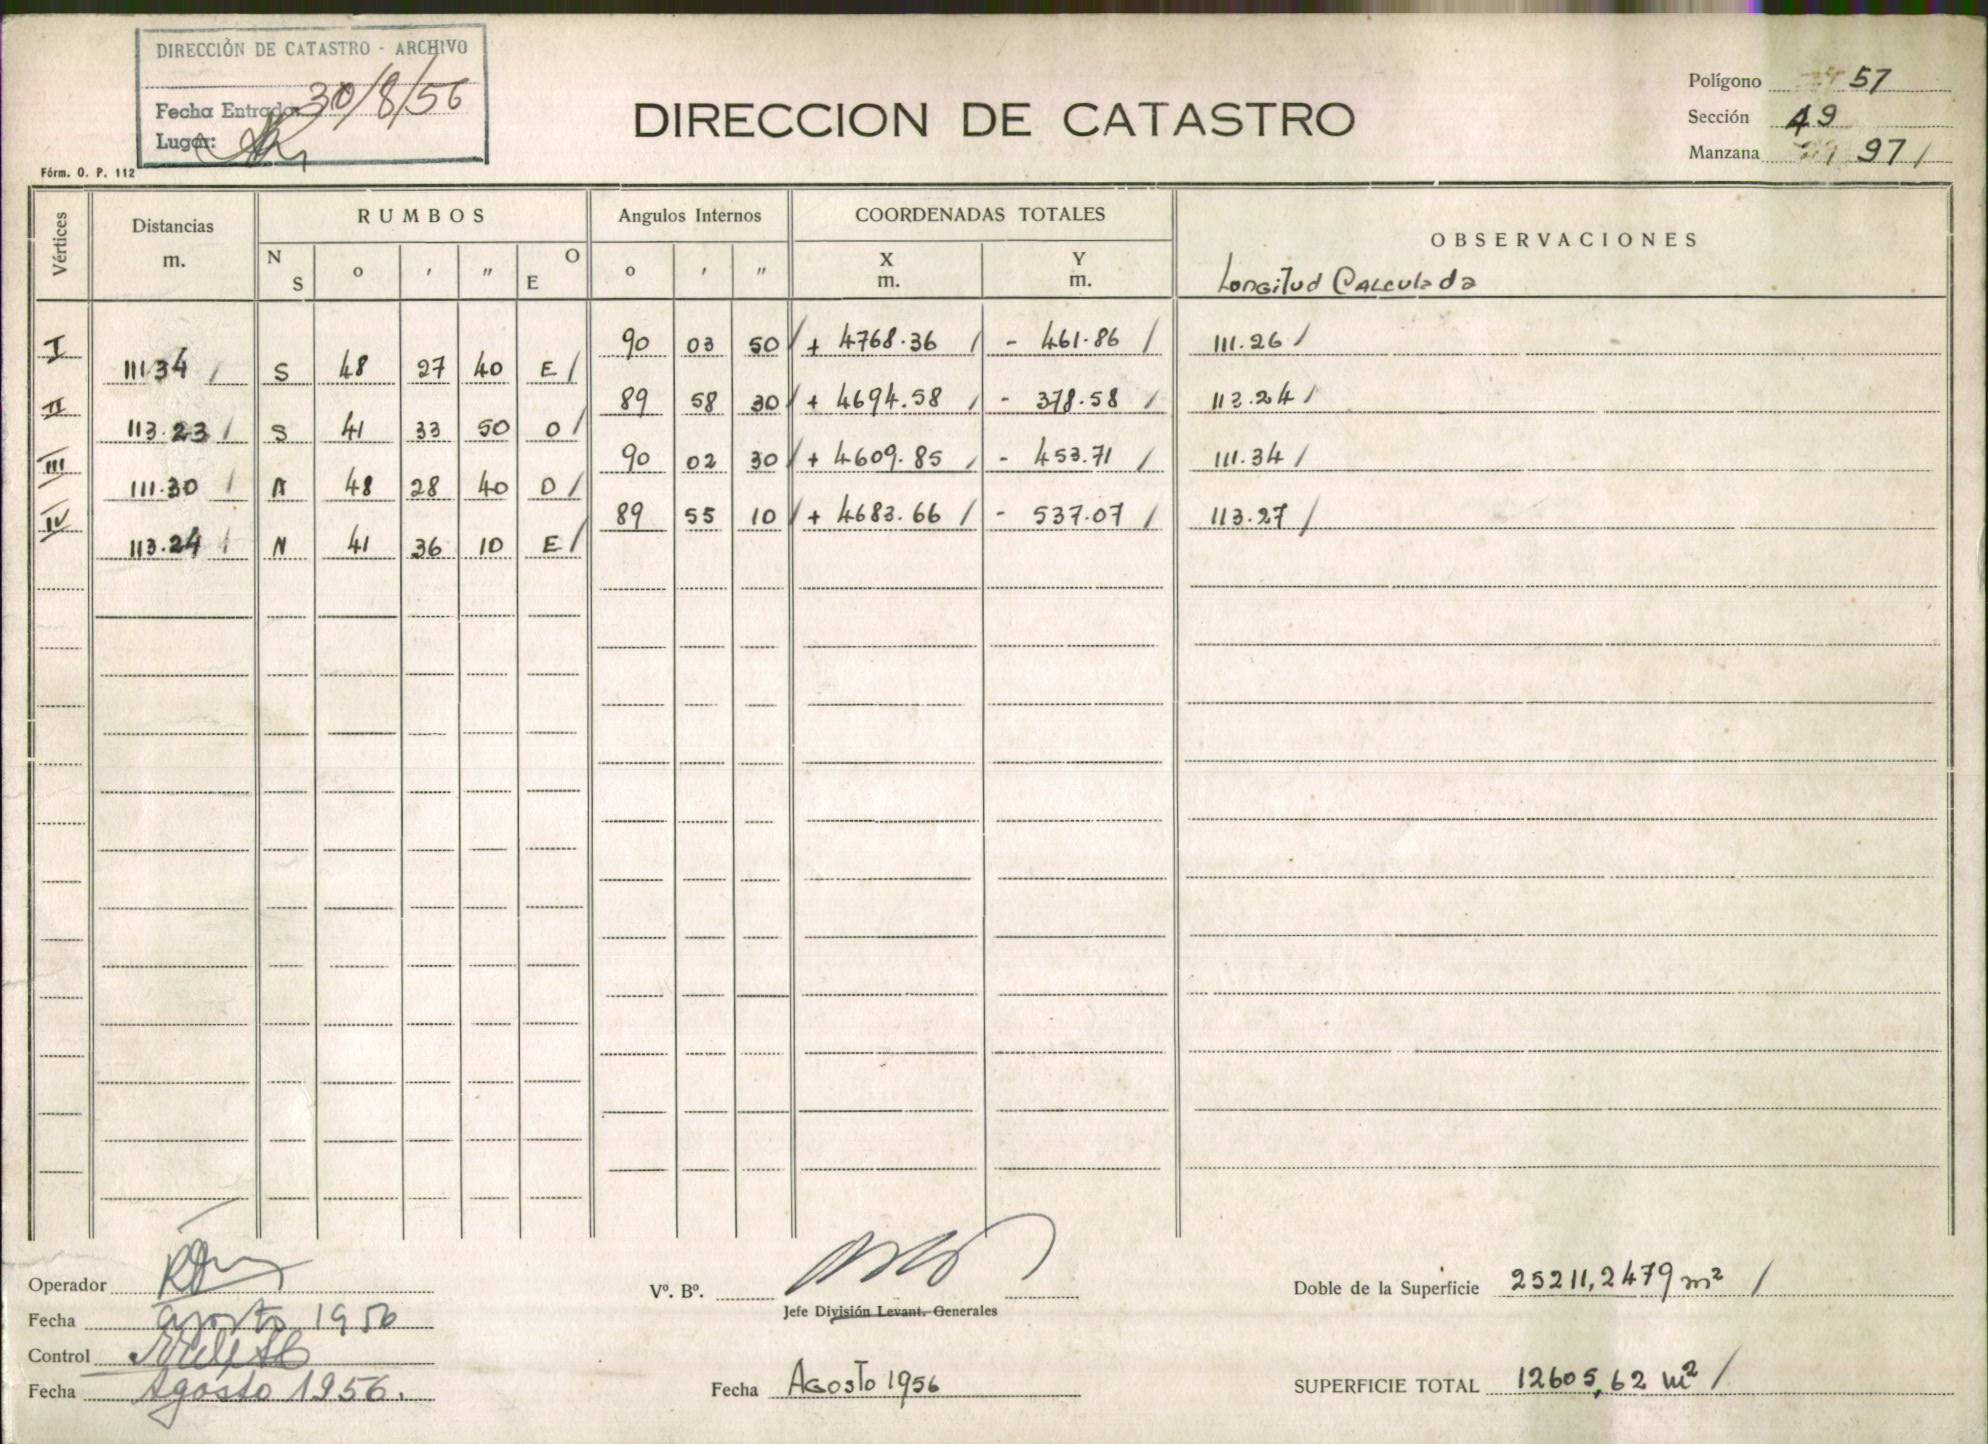 DIRECCIÓN DE CATASTRO - ARCHIVO
Fecha Entrada: 30/8/56
Lugar:
Fórm. O. P. 112
DIRECCION DE CATASTRO
Polígono 57
Sección 49
Manzana 97 /
Vértices Distancias m. RUMBOS Angulos Internos COORDENADAS TOTALES OBSERVACIONES
N S o ' " O E o ' " X m. Y m. Longitud Calculada
I 90 03 50 / + 4768.36 / - 461.86 / 111.26 /
111.34 / S 48 27 40 E /
II 89 58 30 / + 4694.58 / - 378.58 / 113.24 /
113.23 / S 41 33 50 O /
III 90 02 30 / + 4609.85 / - 453.71 / 111.34 /
111.30 / N 48 28 40 O /
IV 89 55 10 / + 4683.66 / - 537.07 / 113.27 /
113.24 / N 41 36 10 E /
Operador
Fecha agosto 1956
Control
Fecha Agosto 1956.
Vº. Bº.
Jefe División Levant. Generales
Fecha Agosto 1956
Doble de la Superficie 25211,2479 m² /
SUPERFICIE TOTAL 12605,62 m² /